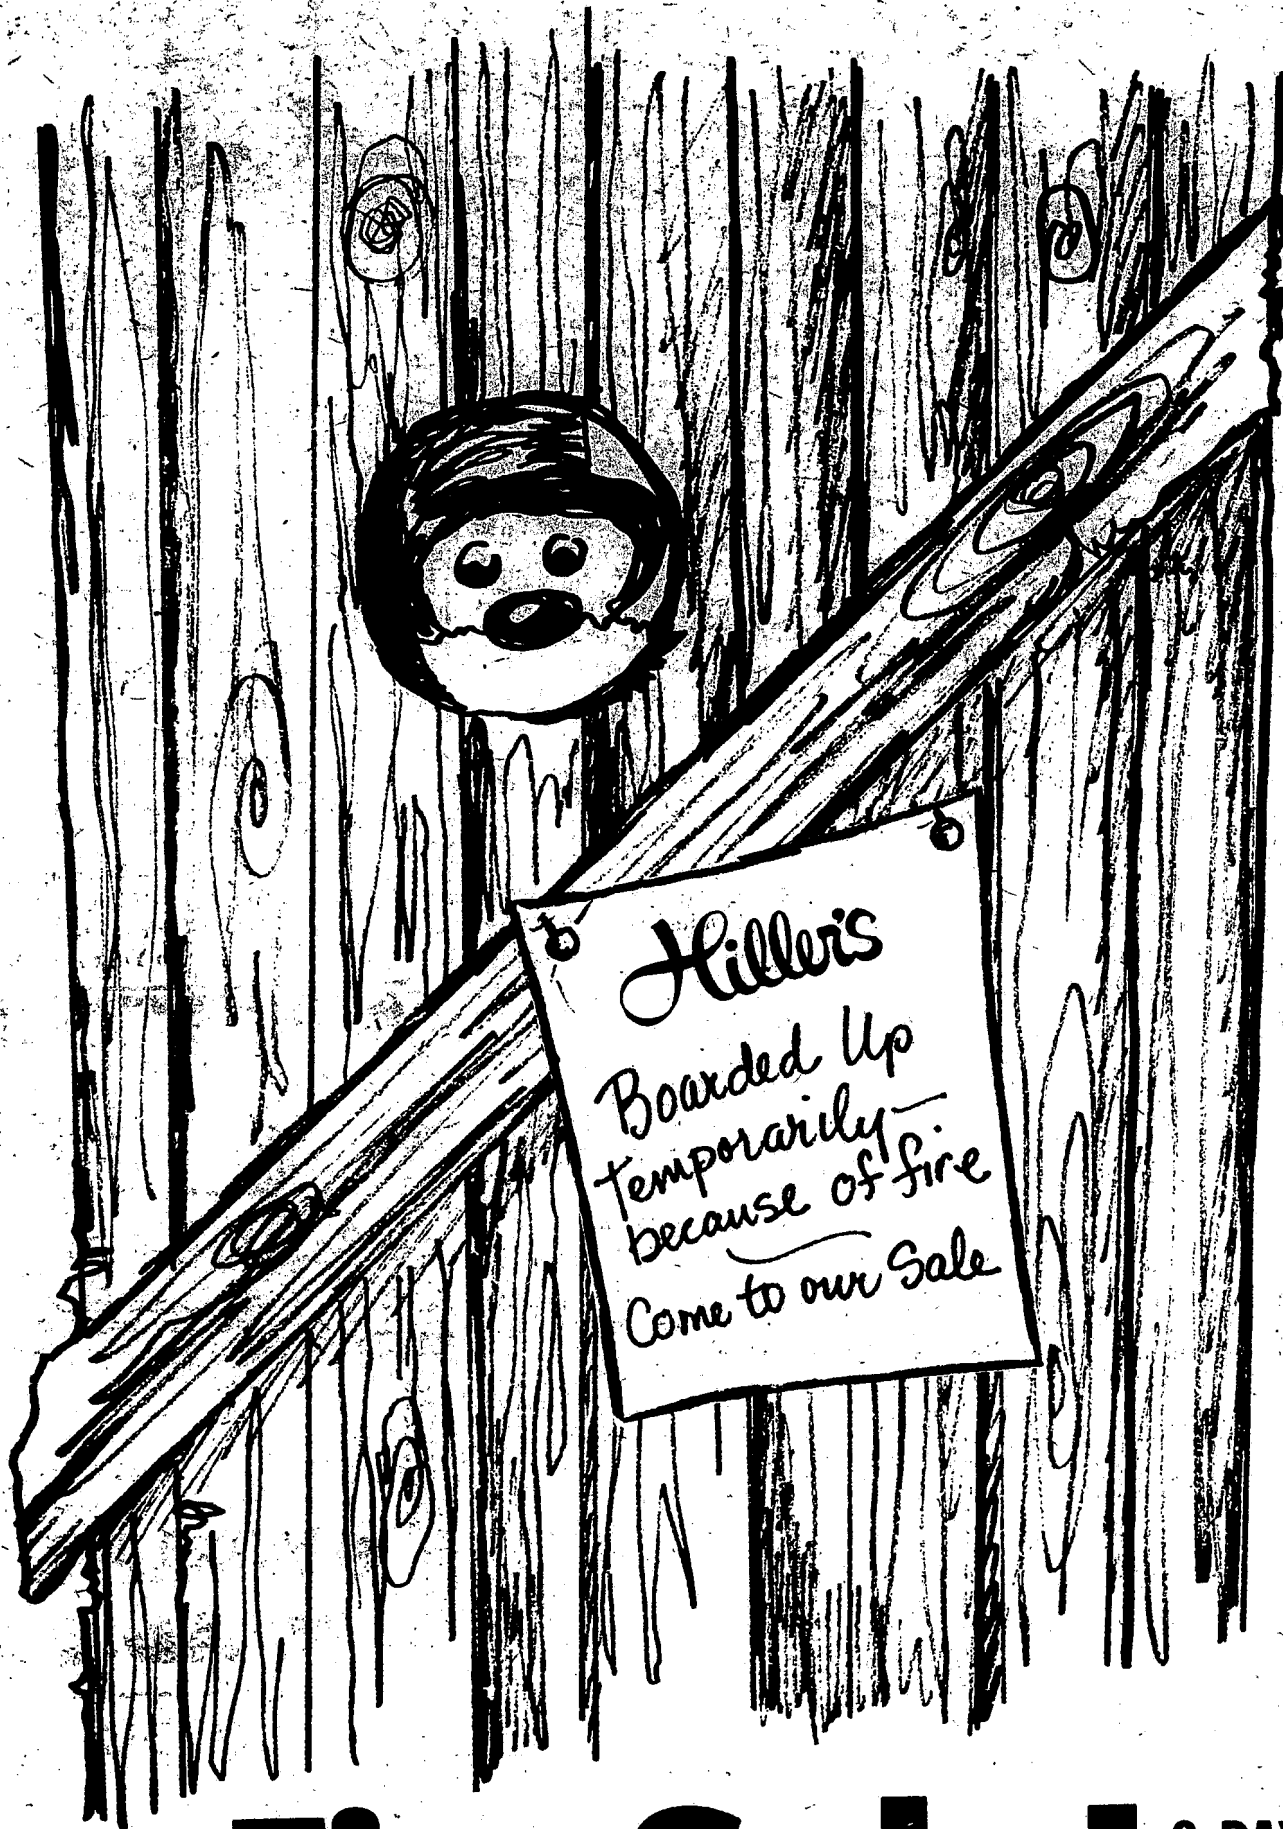 Hiller's
Boarded Up
temporarily—
because of fire
Come to our Sale